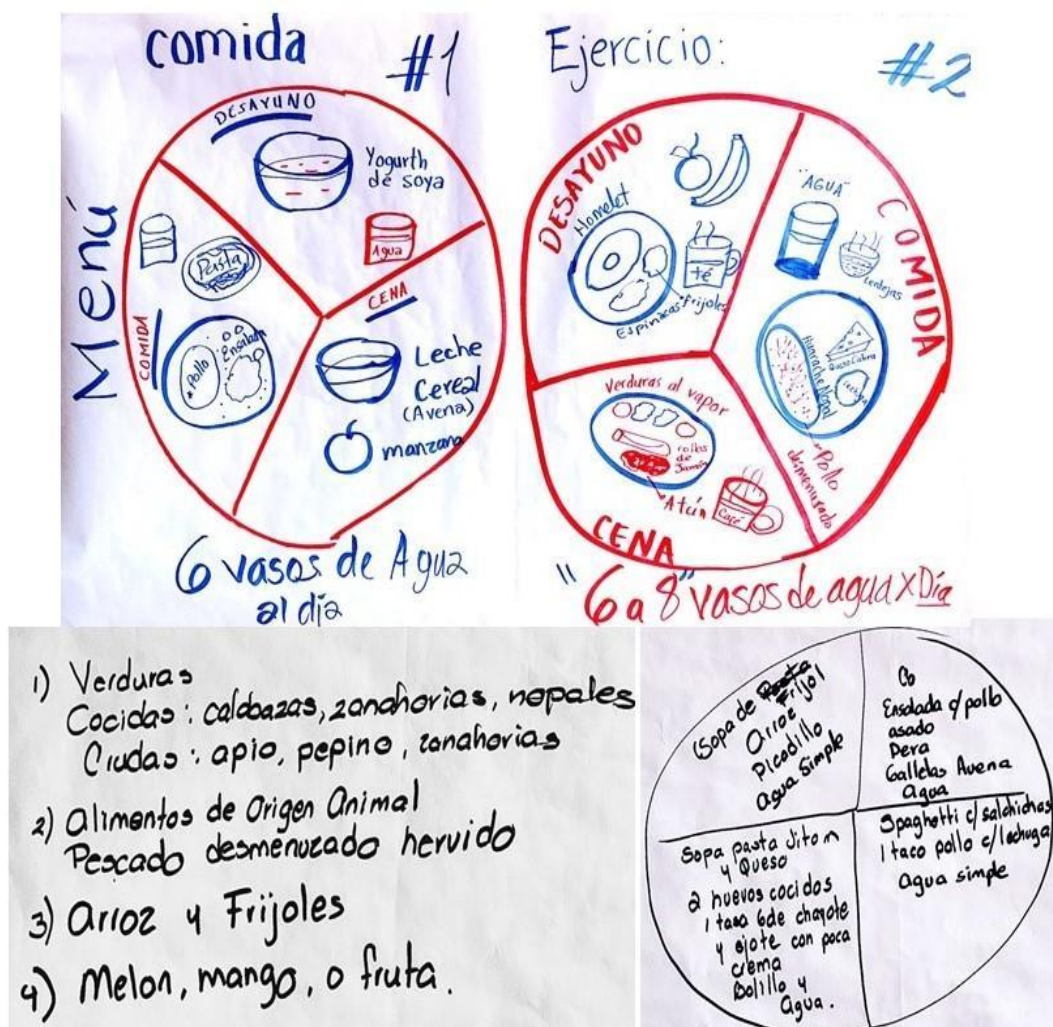 comida #1
Menú
DESAYUNO
Yogurth
de soya
Agua
Pasta
COMIDA
Pollo
Ensalada
CENA
Leche
Cereal
(Avena)
manzana
6 vasos de Agua
al día
Ejercicio: #2
DESAYUNO
Homelet
té
frijoles
Espinacas
COMIDA
"AGUA"
Lentejas
Huarache Nopal
Queso Cabra
Lechuga
Pollo
desmenuzado
Verduras al vapor
rollos
de
Jamón
Atún
Café
CENA
"6 a 8" vasos de agua x Día
1) Verduras
Cocidas: calabazas, zanahorias, nopales
Crudas: apio, pepino, zanahorias
2) Alimentos de Origen Animal
Pescado desmenuzado hervido
3) Arroz y Frijoles
4) Melon, mango, o fruta.
(Sopa de Frijol
Arroz
Picadillo
agua simple
Co
Ensalada c/pollo
asado
Pera
Galletas Avena
Agua
Sopa pasta Jitom
y Queso
2 huevos cocidos
1 tasa de chayote
y ejote con poca
crema
Bolillo y
agua.
Spaghetti c/salchichas
1 taco pollo c/lechuga
agua simple